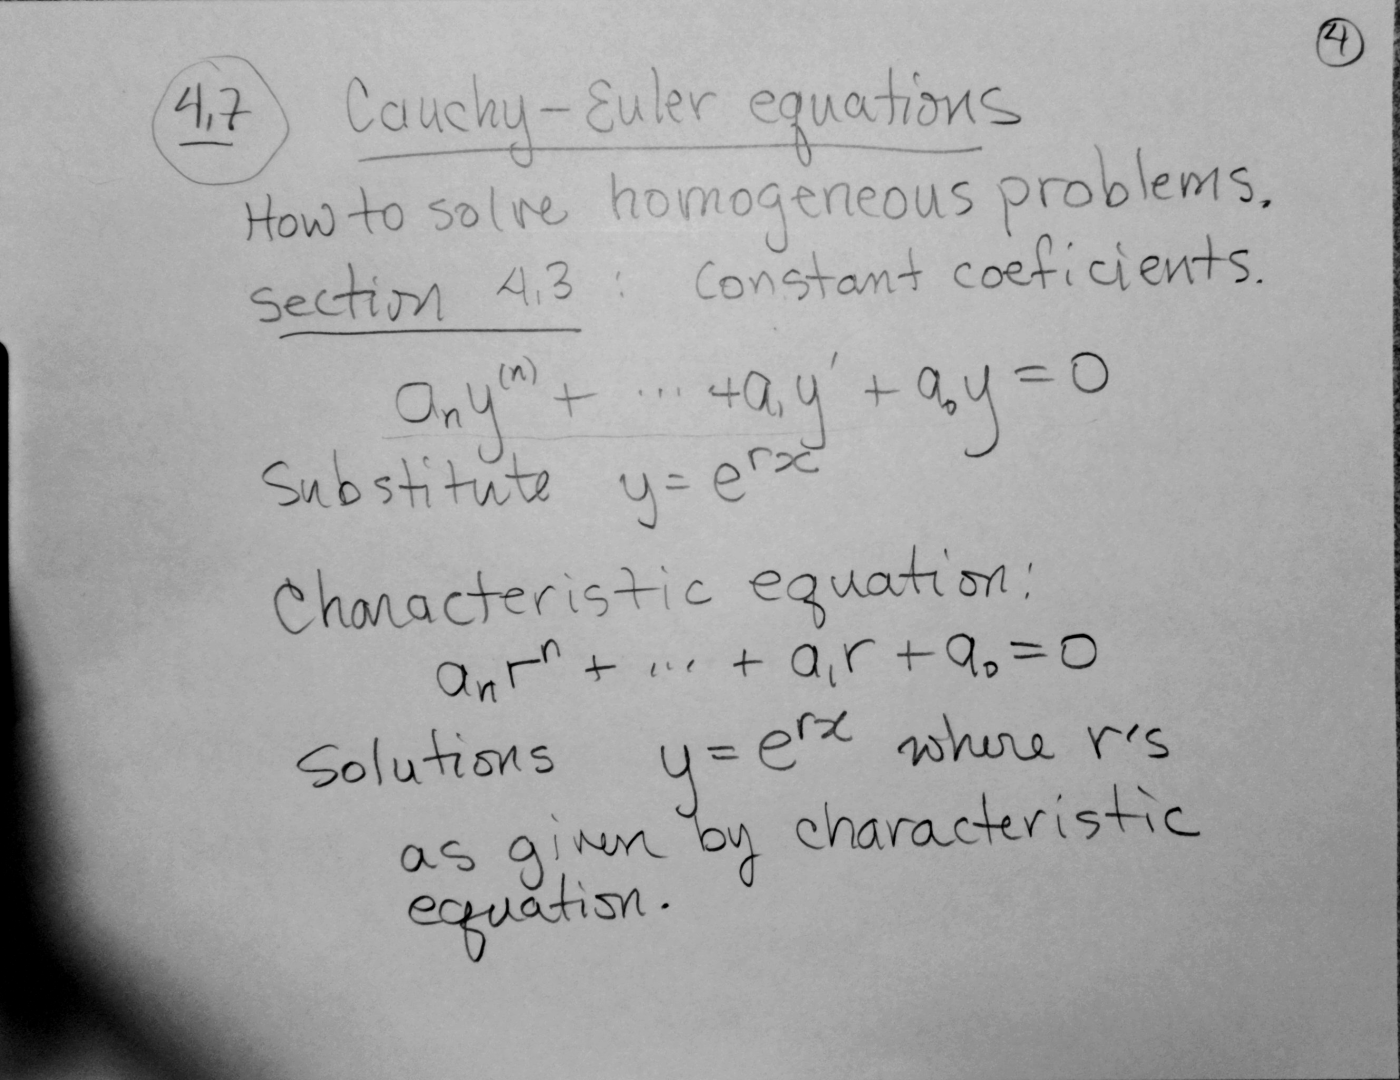 4
4.7 Cauchy-Euler equations
How to solve homogeneous problems.
section 4.3 : Constant coeficients.
aₙy⁽ⁿ⁾ + ... + a₁y' + a₀y = 0
Substitute y = eʳˣ
Characteristic equation:
aₙrⁿ + ... + a₁r + a₀ = 0
Solutions y = eʳˣ where r's
as given by characteristic
equation.